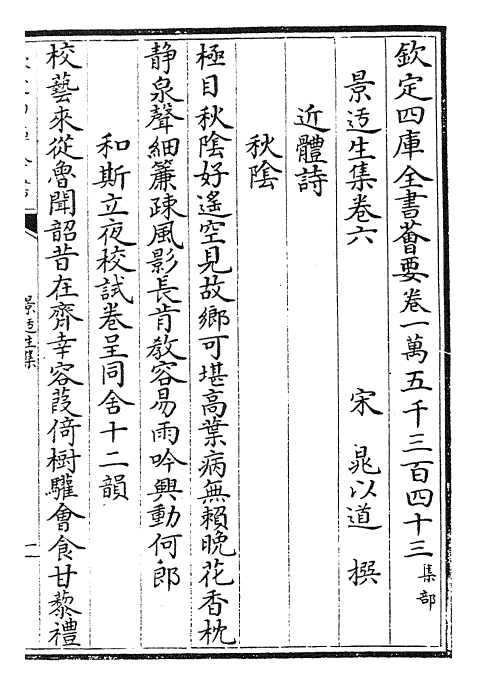 欽定四庫全書薈要卷一萬五千三百四十三集部
景迃生集卷六
宋 晁以道 撰
近體詩
秋陰
極目秋陰好遙空見故鄉可堪高葉病無賴晚花香枕
静泉聲細簾疎風影長肯教容易雨吟興動何郎
和斯立夜校試卷呈同舍十二韻
校藝來從魯聞韶昔在齊幸容葭倚樹驩會食甘藜禮
景迃生集
一